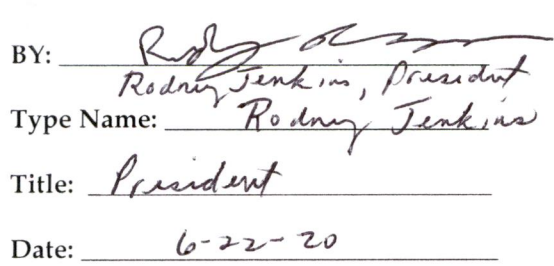 BY:
Rodney Jenkins, President
Type Name: Rodney Jenkins
Title: President
Date: 6-22-20